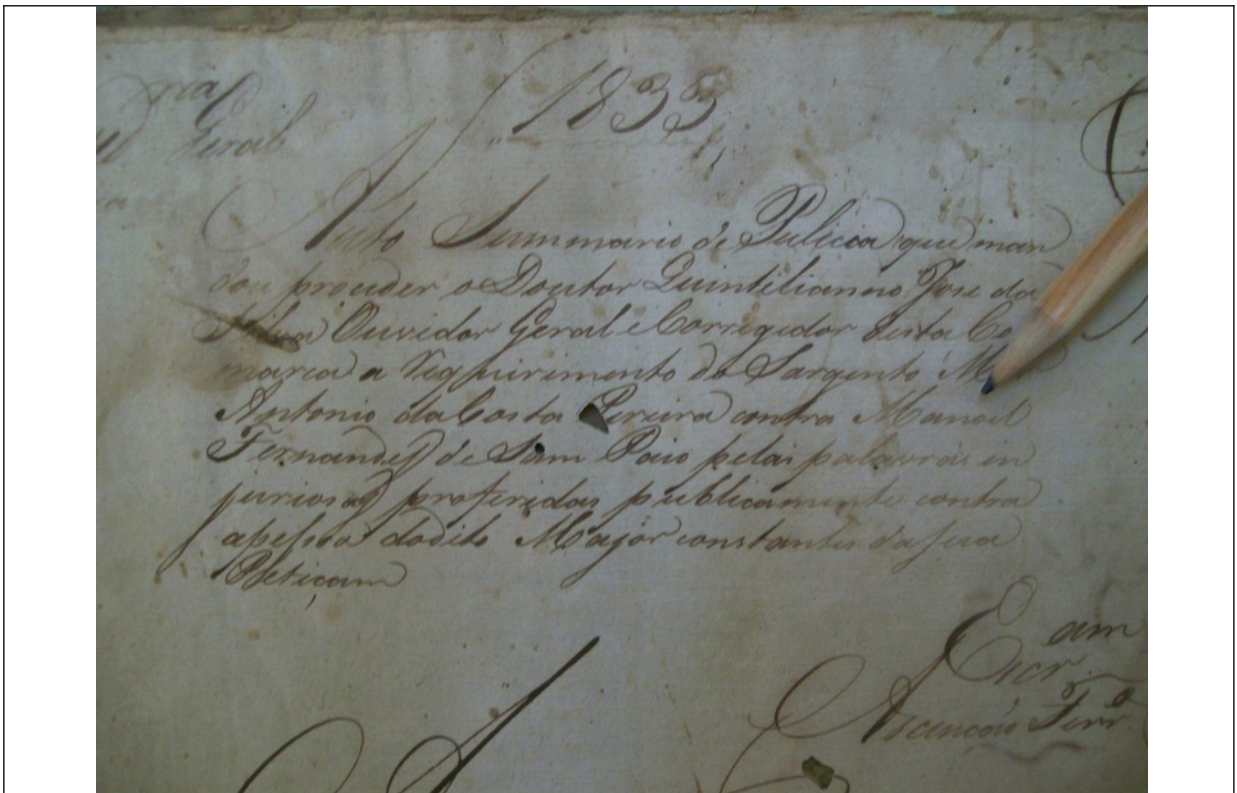 1833
Geral
Auto Summario de Pulicia que man
dou proceder o Doutor Quintilianno Jose da
Silva Ouvidor Geral e Corregidor desta Co
marca a Requirimento do Sargento M
Antonio da Costa Pereira contra Manoel
Fernandes de Sam Paio pelas palavras in
juriosas proferidas publicamente contra
apessoa dodito Major constantes da sua
Peticam
am
Escr
Ascencio Ferr